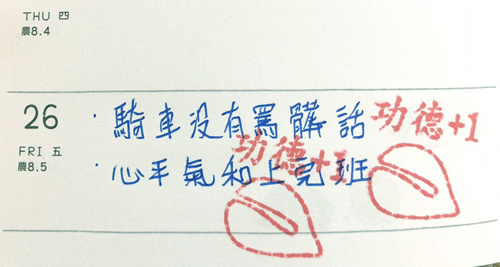 THU 四
農8.4
26
FRI 五
農8.5
·騎車没有罵髒話
功德+1
·心平氣和上完班
功德+1